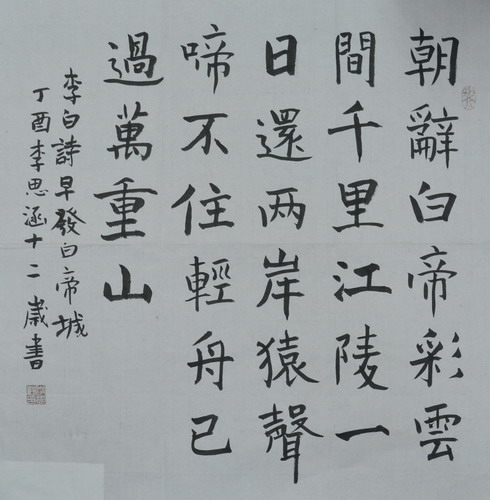 朝辭白帝彩雲
間千里江陵一
日還两岸猿聲
啼不住輕舟已
過萬重山
李白詩早發白帝城
丁酉李思涵十二歲書